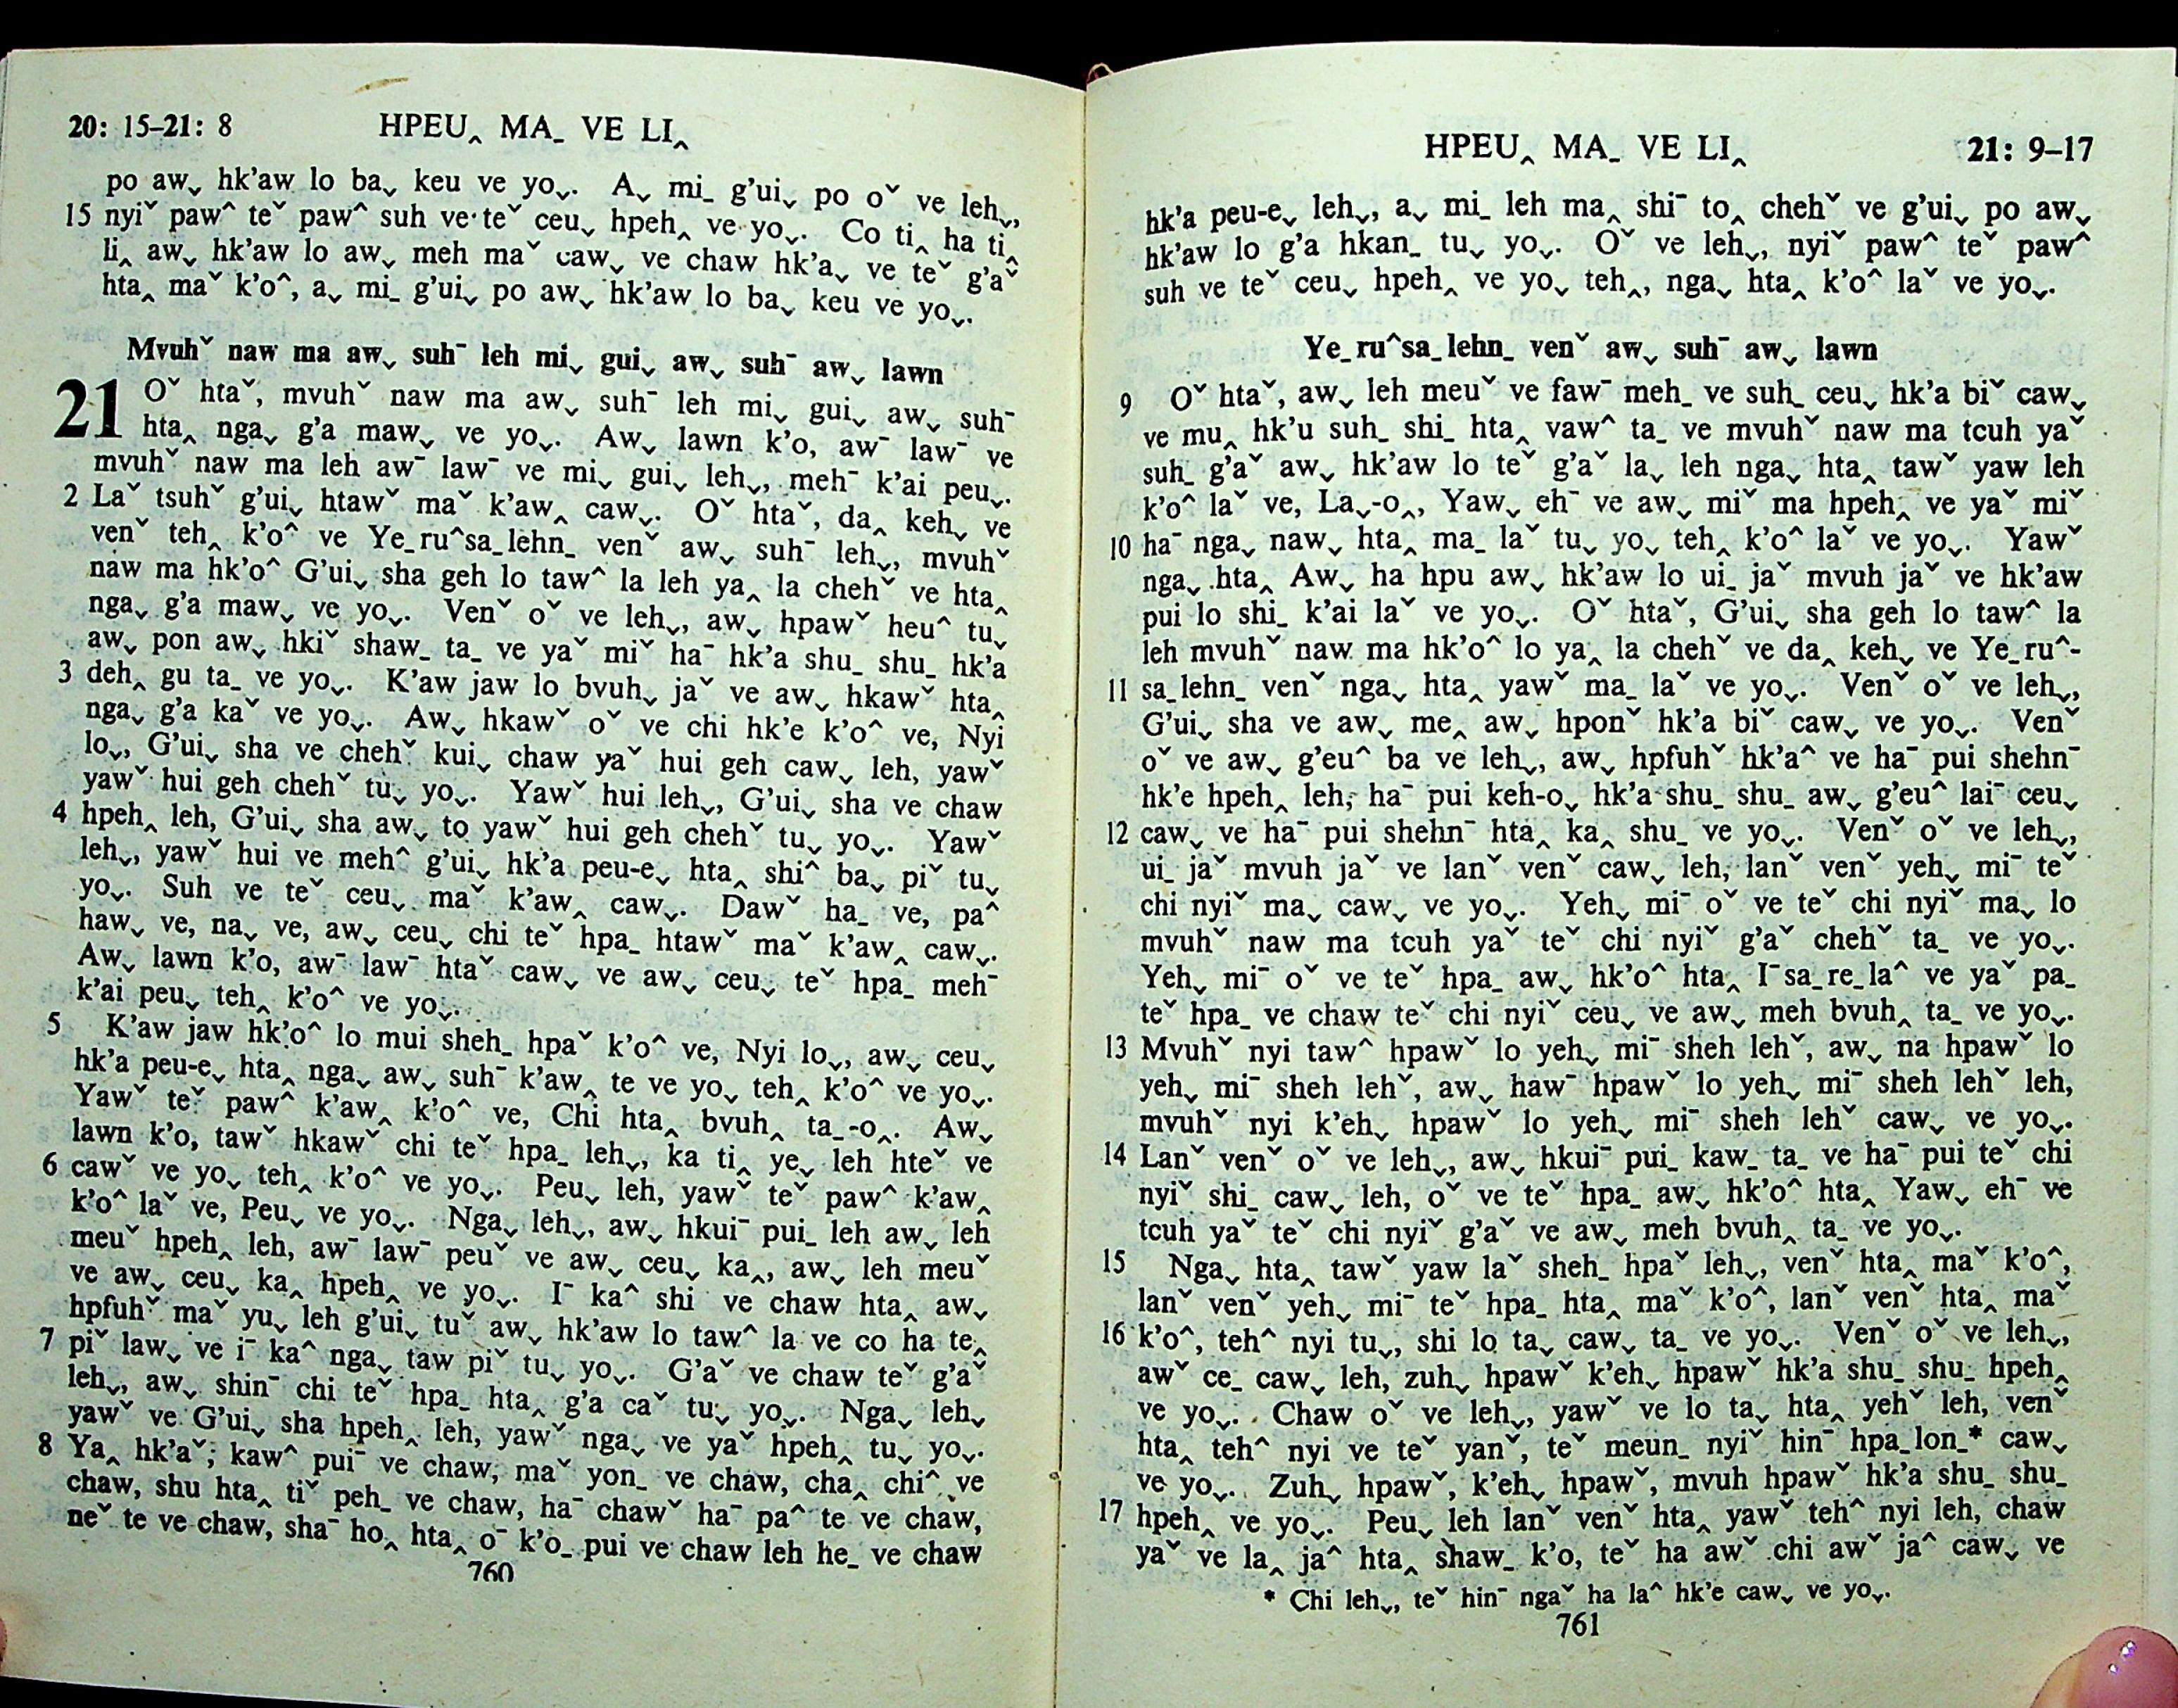 20: 15–21: 8 HPEUꞈ MA_ VE LIꞈ
po aw˯ hk'aw lo ba˯ keu ve yo˯. A˯ mi_ g'ui˯ po oˇ ve leh˯,
15 nyiˇ paw^ teˇ paw^ suh ve teˇ ceu˯ hpehꞈ ve yo˯. Co tiꞈ ha tiꞈ
liꞈ aw˯ hk'aw lo aw˯ meh maˇ caw˯ ve chaw hk'a˯ ve teˇ g'aˇ
htaꞈ maˇ k'o^, a˯ mi_ g'ui˯ po aw˯ hk'aw lo ba˯ keu ve yo˯.
Mvuhˇ naw ma aw˯ suh¯ leh mi˯ gui˯ aw˯ suh¯ aw˯ lawn
21 Oˇ htaˇ, mvuhˇ naw ma aw˯ suh¯ leh mi˯ gui˯ aw˯ suh¯
htaꞈ nga˯ g'a maw˯ ve yo˯. Aw˯ lawn k'o, aw¯ law¯ ve
mvuhˇ naw ma leh aw¯ law¯ ve mi˯ gui˯ leh˯, meh¯ k'ai peu˯.
2 Laˇ tsuhˇ g'ui˯ htawˇ maˇ k'awꞈ caw˯. Oˇ htaˇ, daꞈ keh˯ ve
venˇ tehꞈ k'o^ ve Ye_ru^sa_lehn_ venˇ aw˯ suh¯ leh˯, mvuhˇ
naw ma hk'o^ G'ui˯ sha geh lo taw^ la leh yaꞈ la chehˇ ve htaꞈ
nga˯ g'a maw˯ ve yo˯. Venˇ oˇ ve leh˯, aw˯ hpawˇ heu^ tu˯
aw˯ pon aw˯ hkiˇ shaw_ ta_ ve yaˇ miˇ ha¯ hk'a shu_ shu_ hk'a
3 dehꞈ gu ta_ ve yo˯. K'aw jaw lo bvuh˯ jaˇ ve aw˯ hkawˇ htaꞈ
nga˯ g'a kaˇ ve yo˯. Aw˯ hkawˇ oˇ ve chi hk'e k'o^ ve, Nyi
lo˯, G'ui˯ sha ve chehˇ kui˯ chaw yaˇ hui geh caw˯ leh, yawˇ
yawˇ hui geh chehˇ tu˯ yo˯. Yawˇ hui leh˯, G'ui˯ sha ve chaw
4 hpehꞈ leh, G'ui˯ sha aw˯ to yawˇ hui geh chehˇ tu˯ yo˯. Yawˇ
leh˯, yawˇ hui ve meh^ g'ui˯ hk'a peu-e˯ htaꞈ shi^ ba˯ piˇ tu˯
yo˯. Suh ve teˇ ceu˯ maˇ k'awꞈ caw˯. Dawˇ ha_ ve, pa^
haw˯ ve, na˯ ve, aw˯ ceu˯ chi teˇ hpa_ htawˇ maˇ k'awꞈ caw˯.
Aw˯ lawn k'o, aw¯ law¯ htaˇ caw˯ ve aw˯ ceu˯ teˇ hpa_ meh¯
k'ai peu˯ tehꞈ k'o^ ve yo˯.
5 K'aw jaw hk'o^ lo mui sheh_ hpaˇ k'o^ ve, Nyi lo˯, aw˯ ceu˯
hk'a peu-e˯ htaꞈ nga˯ aw˯ suh¯ k'awꞈ te ve yo˯ tehꞈ k'o^ ve yo˯.
Yawˇ teˇ paw^ k'awꞈ k'o^ ve, Chi htaꞈ bvuhꞈ ta_-oꞈ. Aw˯
lawn k'o, tawˇ hkawˇ chi teˇ hpa_ leh˯, ka tiꞈ ye˯ leh hteˇ ve
6 cawˇ ve yo˯ tehꞈ k'o^ ve yo˯. Peu˯ leh, yawˇ teˇ paw^ k'awꞈ
k'o^ laˇ ve, Peu˯ ve yo˯. Nga˯ leh˯, aw˯ hkui¯ pui_ leh aw˯ leh
meuˇ hpehꞈ leh, aw¯ law¯ peuˇ ve aw˯ ceu˯ kaꞈ, aw˯ leh meuˇ
ve aw˯ ceu˯ kaꞈ hpehꞈ ve yo˯. I¯ ka^ shi ve chaw htaꞈ aw˯
hpfuhˇ maˇ yu˯ leh g'ui˯ tuˇ aw˯ hk'aw lo taw^ la ve co ha teꞈ
7 piˇ law˯ ve i¯ ka^ nga˯ taw piˇ tu˯ yo˯. G'aˇ ve chaw teˇ g'aˇ
leh˯, aw˯ shin¯ chi teˇ hpa_ htaꞈ g'a caˇ tu˯ yo˯. Nga˯ leh˯
yawˇ ve G'ui˯ sha hpehꞈ leh, yawˇ nga˯ ve yaˇ hpehꞈ tu˯ yo˯.
8 Yaꞈ hk'aˇ; kaw^ pui¯ ve chaw, maˇ yon_ ve chaw, chaꞈ chi^ ve
chaw, shu htaꞈ tiˇ peh_ ve chaw, ha¯ chawˇ ha¯ pa^ te ve chaw,
neˇ te ve chaw, sha¯ hoꞈ htaꞈ o¯ k'o_ pui ve chaw leh he_ ve chaw
760
HPEUꞈ MA_ VE LIꞈ 21: 9–17
hk'a peu-e˯ leh˯, a˯ mi_ leh maꞈ shi¯ toꞈ chehˇ ve g'ui˯ po aw˯
hk'aw lo g'a hkan_ tu˯ yo˯. Oˇ ve leh˯, nyiˇ paw^ teˇ paw^
suh ve teˇ ceu˯ hpehꞈ ve yo˯ tehꞈ, nga˯ htaꞈ k'o^ laˇ ve yo˯.
Ye_ru^sa_lehn_ venˇ aw˯ suh¯ aw˯ lawn
9 Oˇ htaˇ, aw˯ leh meuˇ ve faw¯ meh_ ve suh_ ceu˯ hk'a biˇ caw˯
ve muꞈ hk'u suh_ shi_ htaꞈ vaw^ ta_ ve mvuhˇ naw ma tcuh yaˇ
suh_ g'aˇ aw˯ hk'aw lo teˇ g'aˇ la˯ leh nga˯ htaꞈ tawˇ yaw leh
k'o^ laˇ ve, La˯-oꞈ, Yaw˯ eh¯ ve aw˯ miˇ ma hpehꞈ ve yaˇ miˇ
10 ha¯ nga˯ naw˯ htaꞈ ma_ laˇ tu˯ yo˯ tehꞈ k'o^ laˇ ve yo˯. Yawˇ
nga˯ htaꞈ Aw˯ ha hpu aw˯ hk'aw lo ui_ jaˇ mvuh jaˇ ve hk'aw
pui lo shi_ k'ai laˇ ve yo˯. Oˇ htaˇ, G'ui˯ sha geh lo taw^ la
leh mvuhˇ naw ma hk'o^ lo yaꞈ la chehˇ ve daꞈ keh˯ ve Ye_ru^-
11 sa_lehn_ venˇ nga˯ htaꞈ yawˇ ma_ laˇ ve yo˯. Venˇ oˇ ve leh˯,
G'ui˯ sha ve aw˯ meꞈ aw˯ hponˇ hk'a biˇ caw˯ ve yo˯. Venˇ
oˇ ve aw˯ g'eu^ ba ve leh˯, aw˯ hpfuhˇ hk'a^ ve ha¯ pui shehn¯
hk'e hpehꞈ leh, ha¯ pui keh-o˯ hk'a shu_ shu_ aw˯ g'eu^ lai¯ ceu˯
12 caw˯ ve ha¯ pui shehn¯ htaꞈ kaꞈ shu_ ve yo˯. Venˇ oˇ ve leh˯,
ui_ jaˇ mvuh jaˇ ve lanˇ venˇ caw˯ leh, lanˇ venˇ yeh˯ mi¯ teˇ
chi nyiˇ ma˯ caw˯ ve yo˯. Yeh˯ mi¯ oˇ ve teˇ chi nyiˇ ma˯ lo
mvuhˇ naw ma tcuh yaˇ teˇ chi nyiˇ g'aˇ chehˇ ta_ ve yo˯.
Yeh˯ mi¯ oˇ ve teˇ hpa_ aw˯ hk'o^ htaꞈ I¯sa_re_la^ ve yaˇ pa_
teˇ hpa_ ve chaw teˇ chi nyiˇ ceu˯ ve aw˯ meh bvuhꞈ ta_ ve yo˯.
13 Mvuhˇ nyi taw^ hpawˇ lo yeh˯ mi¯ sheh lehˇ, aw˯ na hpawˇ lo
yeh˯ mi¯ sheh lehˇ, aw˯ haw¯ hpawˇ lo yeh˯ mi¯ sheh lehˇ leh,
mvuhˇ nyi k'eh˯ hpawˇ lo yeh˯ mi¯ sheh lehˇ caw˯ ve yo˯.
14 Lanˇ venˇ oˇ ve leh˯, aw˯ hkui¯ pui_ kaw_ ta_ ve ha¯ pui teˇ chi
nyiˇ shi_ caw˯ leh, oˇ ve teˇ hpa_ aw˯ hk'o^ htaꞈ Yaw˯ eh¯ ve
tcuh yaˇ teˇ chi nyiˇ g'aˇ ve aw˯ meh bvuhꞈ ta_ ve yo˯.
15 Nga˯ htaꞈ tawˇ yaw laˇ sheh_ hpaˇ leh˯, venˇ htaꞈ maˇ k'o^,
lanˇ venˇ yeh˯ mi¯ teˇ hpa_ htaꞈ maˇ k'o^, lanˇ venˇ htaꞈ maˇ
16 k'o^, teh^ nyi tu˯, shi lo ta˯ caw˯ ta_ ve yo˯. Venˇ oˇ ve leh˯,
awˇ ce_ caw˯ leh, zuh˯ hpawˇ k'eh˯ hpawˇ hk'a shu_ shu_ hpehꞈ
ve yo˯. Chaw oˇ ve leh˯, yawˇ ve lo ta˯ htaꞈ yehˇ leh, venˇ
htaꞈ teh^ nyi ve teˇ yanˇ, teˇ meun_ nyiˇ hin¯ hpa_lon_* caw˯
ve yo˯. Zuh˯ hpawˇ, k'eh˯ hpawˇ, mvuh hpawˇ hk'a shu_ shu_
17 hpehꞈ ve yo˯. Peu˯ leh lanˇ venˇ htaꞈ yawˇ teh^ nyi leh, chaw
yaˇ ve laꞈ ja^ htaꞈ shaw_ k'o, teˇ ha awˇ chi awˇ ja^ caw˯ ve
* Chi leh˯, teˇ hin¯ ngaˇ ha la^ hk'e caw˯ ve yo˯.
761